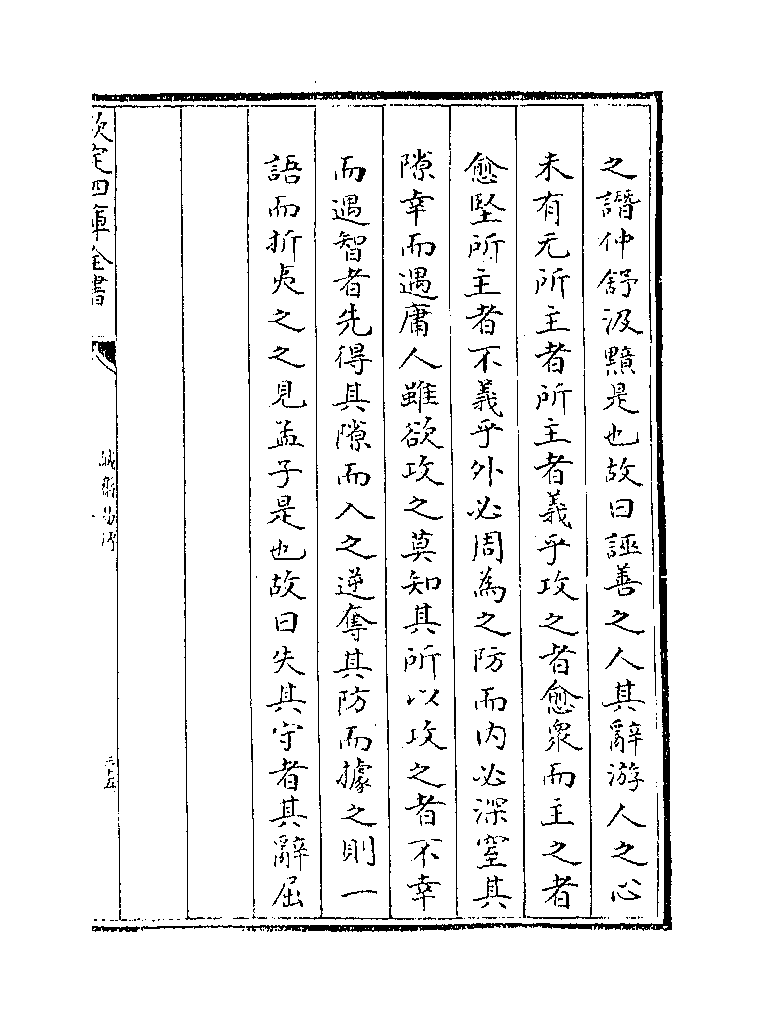 之譖仲舒汲黯是也故曰誣善之人其辭游人之心
未有无所主者所主者義乎攻之者愈衆而主之者
愈堅所主者不義乎外必周為之防而内必深窒其
隙幸而遇庸人雖欲攻之莫知其所以攻之者不幸
而遇智者先得其隙而入之逆奪其防而據之則一
語而折夷之之見孟子是也故曰失其守者其辭屈
欽定四庫全書
誠齋易傳
三十五